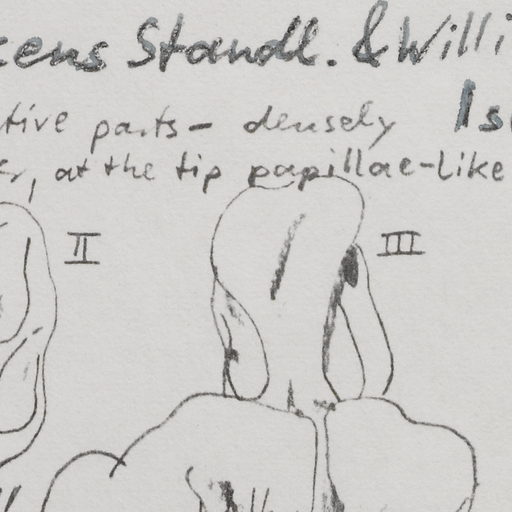 cens Standl. & Willi
tive parts - densely Is
er, at the tip papillae-like
II III